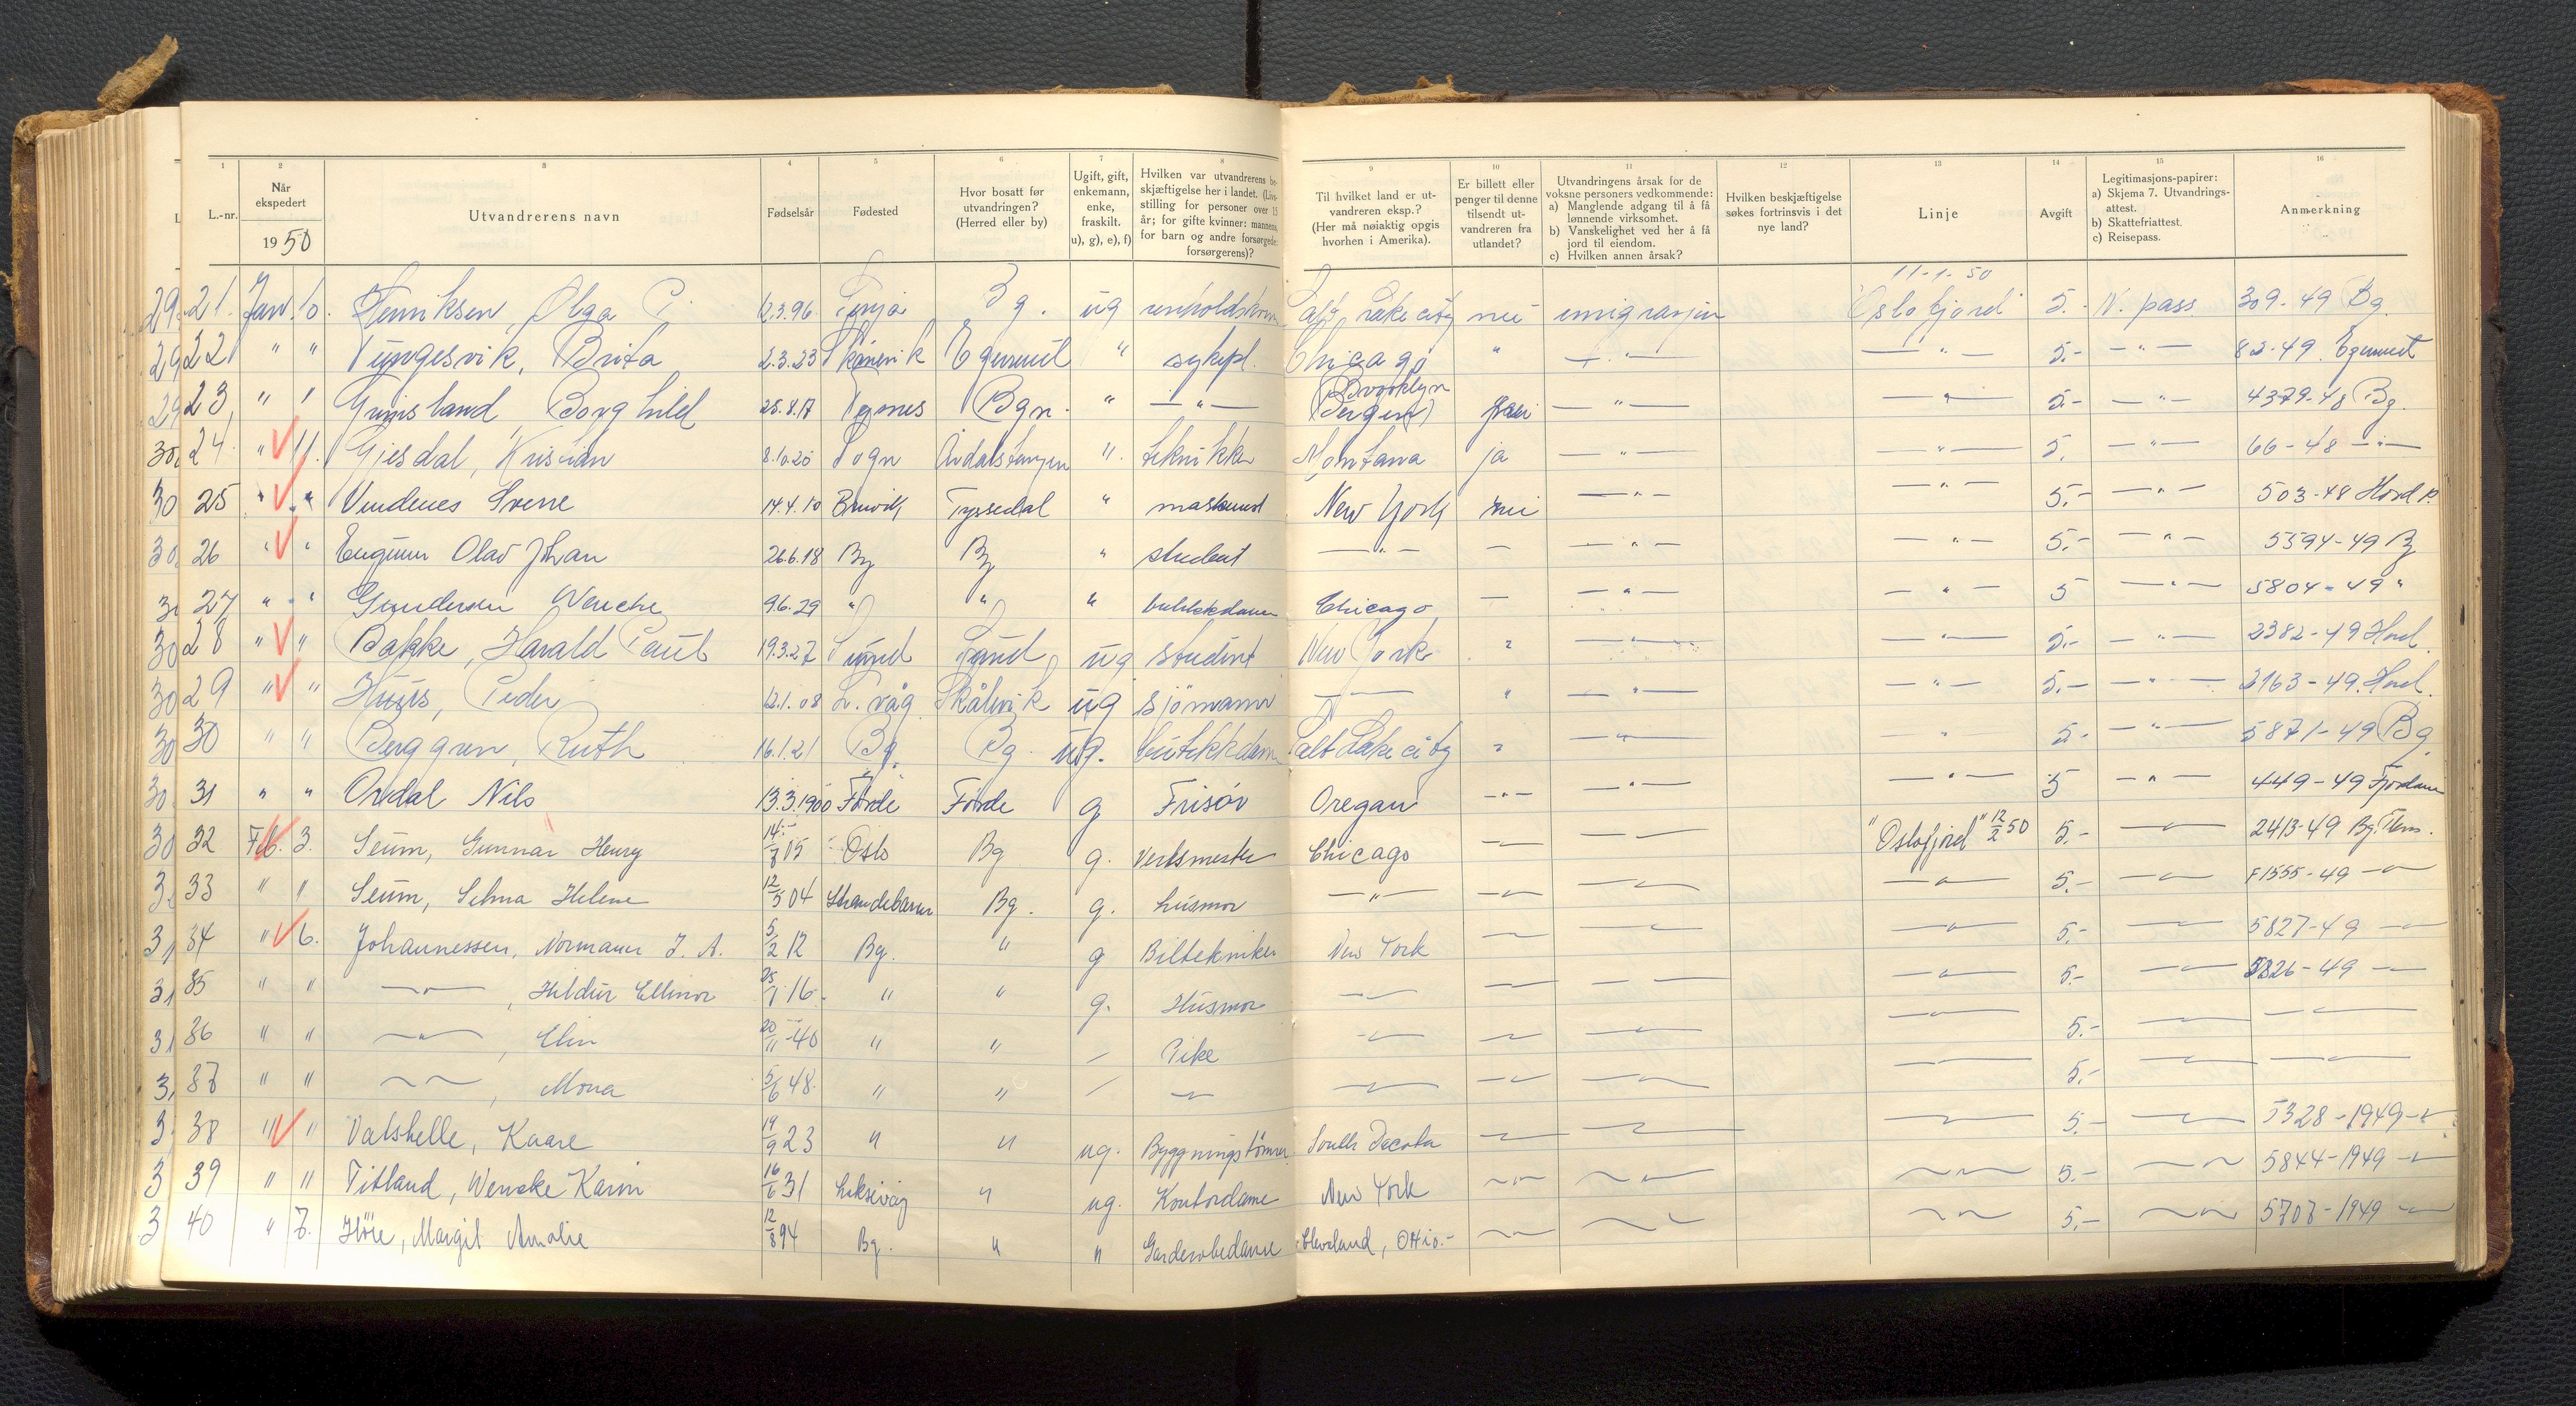 1 2 3 4 5 6 7 8 9 10 11 12 13 14 15 16
L.-nr. | Når ekspedert 1950 | Utvandrerens navn | Fødselsår | Fødested | Hvor bosatt før utvandringen? (Herred eller by) | Ugift, gift, enkemann, enke, fraskilt. u), g), e), f) | Hvilken var utvandrerens be-skjæftigelse her i landet. (Livs-stilling for personer over 15 år; for gifte kvinner: mannens, for barn og andre forsørgede: forsørgerens)? | Til hvilket land er ut-vandreren eksp.? (Her må nøiaktig opgis hvorhen i Amerika). | Er billett eller penger til denne tilsendt ut-vandreren fra utlandet? | Utvandringens årsak for de voksne personers vedkommende: a) Manglende adgang til å få lønnende virksomhet. b) Vanskelighet ved her å få jord til eiendom. c) Hvilken annen årsak? | Hvilken beskjæftigelse søkes fortrinsvis i det nye land? | Linje | Avgift | Legitimasjons-papirer: a) Skjema 7. Utvandrings-attest. b) Skattefriattest. c) Reisepass. | Anmerkning
11-1-50
21. Jan. 10. Henriksen, Olga P. 12.3.96 Bg. ug Salt Lake city nei emigrasjon "Oslofjord" 5.- N. pass 309-49 Bg.
22 " " Tungesvik, Brita 2.3.23 Skånevik Egersund " sykepl. Chicago " — " — — " — 5.- — " — 82-49 Egersund
23 " " Grimsland Borghild 25.8.17 Bgn. " — " — Brooklyn (Bergen) — " — — " — 5.- — " — 4379-48 Bg.
24. " 11. Gjesdal, Kristian 8.10.20 Sogn Årdalstangen " tekniker Montana ja — " — — " — 5. — " — 66-48 — " —
25 " " Vindenes Sverre 14.4.10 Bruvik Tyssedal " New York nei — " — — " — 5.- — " — 503-48 Hord P.
26 " " Olav Johan 26.6.18 Bg Bg " student — " — — — " — — " — 5.- — " — 5594-49 Bg
27 " " Gundersen Wenche 9.6.29 " " " butikkdame Chicago — — " — — " — 5 — " — 5804-49 "
28 " " Bakke, Harald Paul 19.3.27 Sund Sund ug student New York " — " — — " — 5.- — " — 2382-49 Hord.
29 " " Huus, Peder 12.1.08 ug sjømann — " — " — " — — " — 5.- — " — 3163-49. Hord.
30 " " Berggren, Ruth 16.1.21 Bg. Bg. ug. butikkdame Salt Lake city " — " — " 5.- — " — 5871-49 Bg.
31 " " Ordal Nils 13.3.1900 Førde Førde g Frisør Oregan — " — — " — — " — 5 — " — 449-49 Fjordane
32 Feb. 3. Seum, Gunnar Henry 14/7 05 Oslo Bg g. Verksmester Chicago — " — — " — "Oslofjord" 12/2 50 5.- — " — 2413-49 Bg.
33 " " Seum, Selma Helene 12/5 04 Strandebarm Bg. g. husmor — " — — " — — " — — " — 5.- — " — F1555-49 — " —
34 " 6. Johannessen, Normann J. A. 5/2 12 Bg. " g Biltekniker New York — " — — " — — " — 5.- — " — 5827-49 — " —
35 " " — " — , Hildur Ellinor 25/1 16 " " g. Husmor — " — — " — — " — — " — 5.- — " — 5826-49 — " —
36 " " — " — , Elin 20/11-40 " " / Pike — " — — " — — " — — " — 5.- — " — — " —
37 " " — " — , Mona 5/6 48 " " / — " — — " — — " — — " — — " — 5.- — " — — " —
38 " " Vatshelle, Kaare 19/9 23 " " ug. Byggningstømrer South Decota — " — — " — — " — 5.- — " — 5328-1949 — " —
39 " " Titland, Wenche Karin 16/6 31 Laksevåg " ug. Kontordame New York — " — — " — — " — 5.- — " — 5844-1949 — " —
40 " 7. Margit Amalie 12/8 94 Bg. " " Garderobedame Cleveland, OHio.- — " — — " — — " — 5.- — " — 5707-1949 — " —